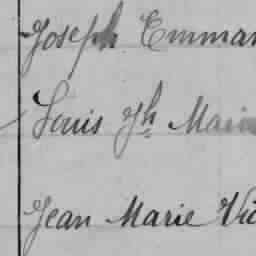 Joseph Emman
Louis Jh Main
Jean Marie Vic